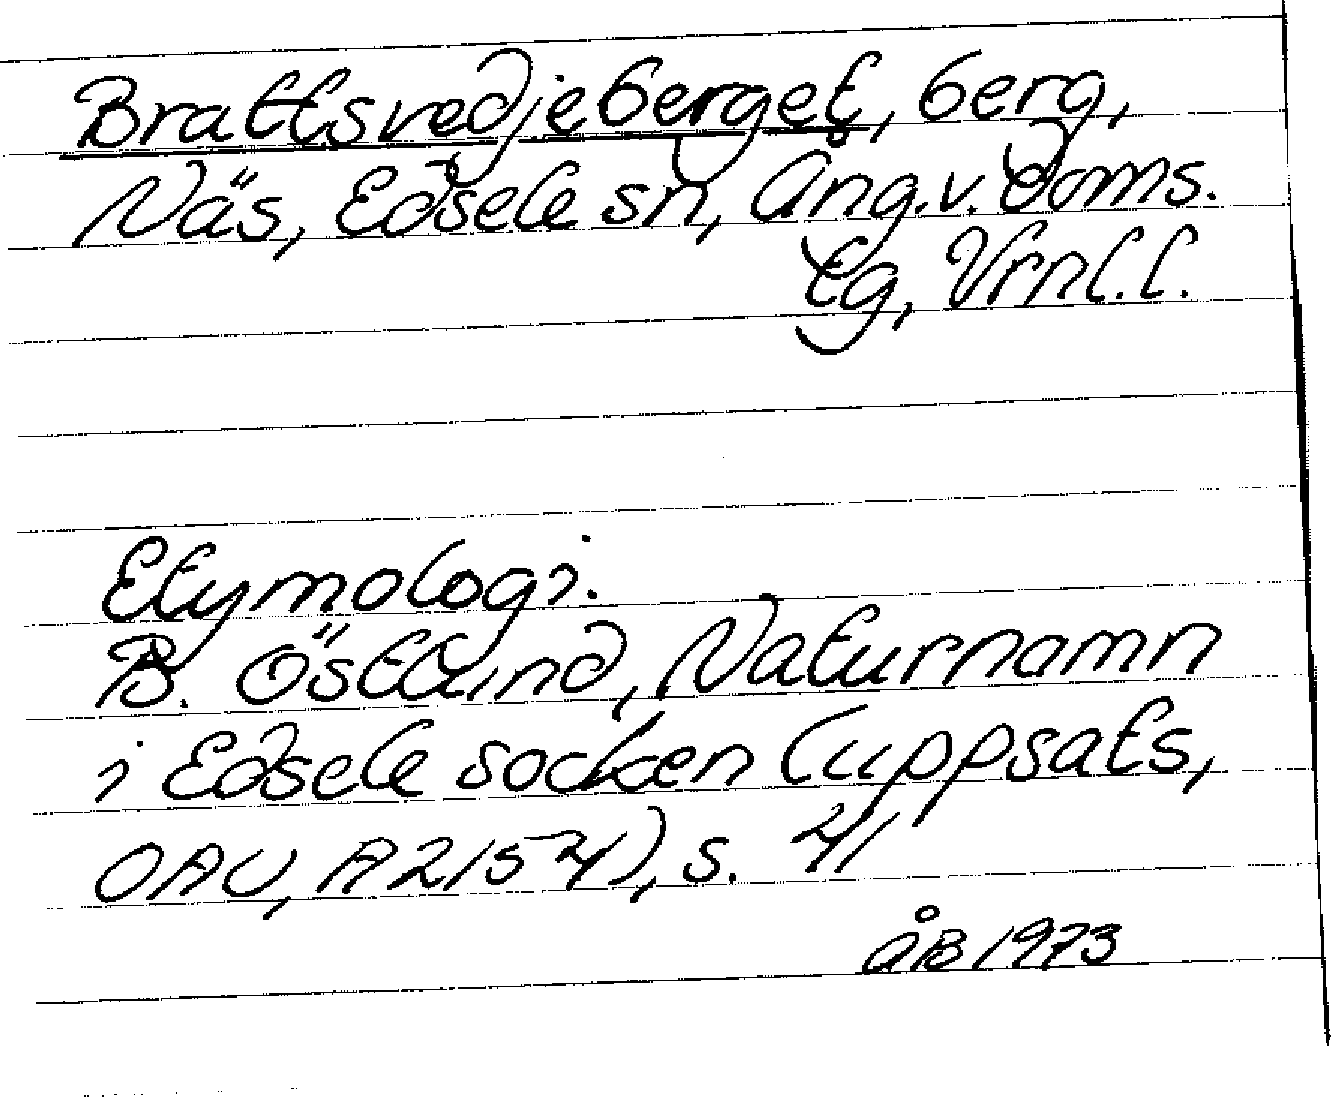 Brattsvedjeberget, berg,
Näs, Edsele sn, Ång. v. doms.
tg, Vrnl. l.
Etymologi.
B. Östlund, Naturnamn
i Edsele socken (uppsats,
OAU, A 2154), s. 41
ÅB 1973